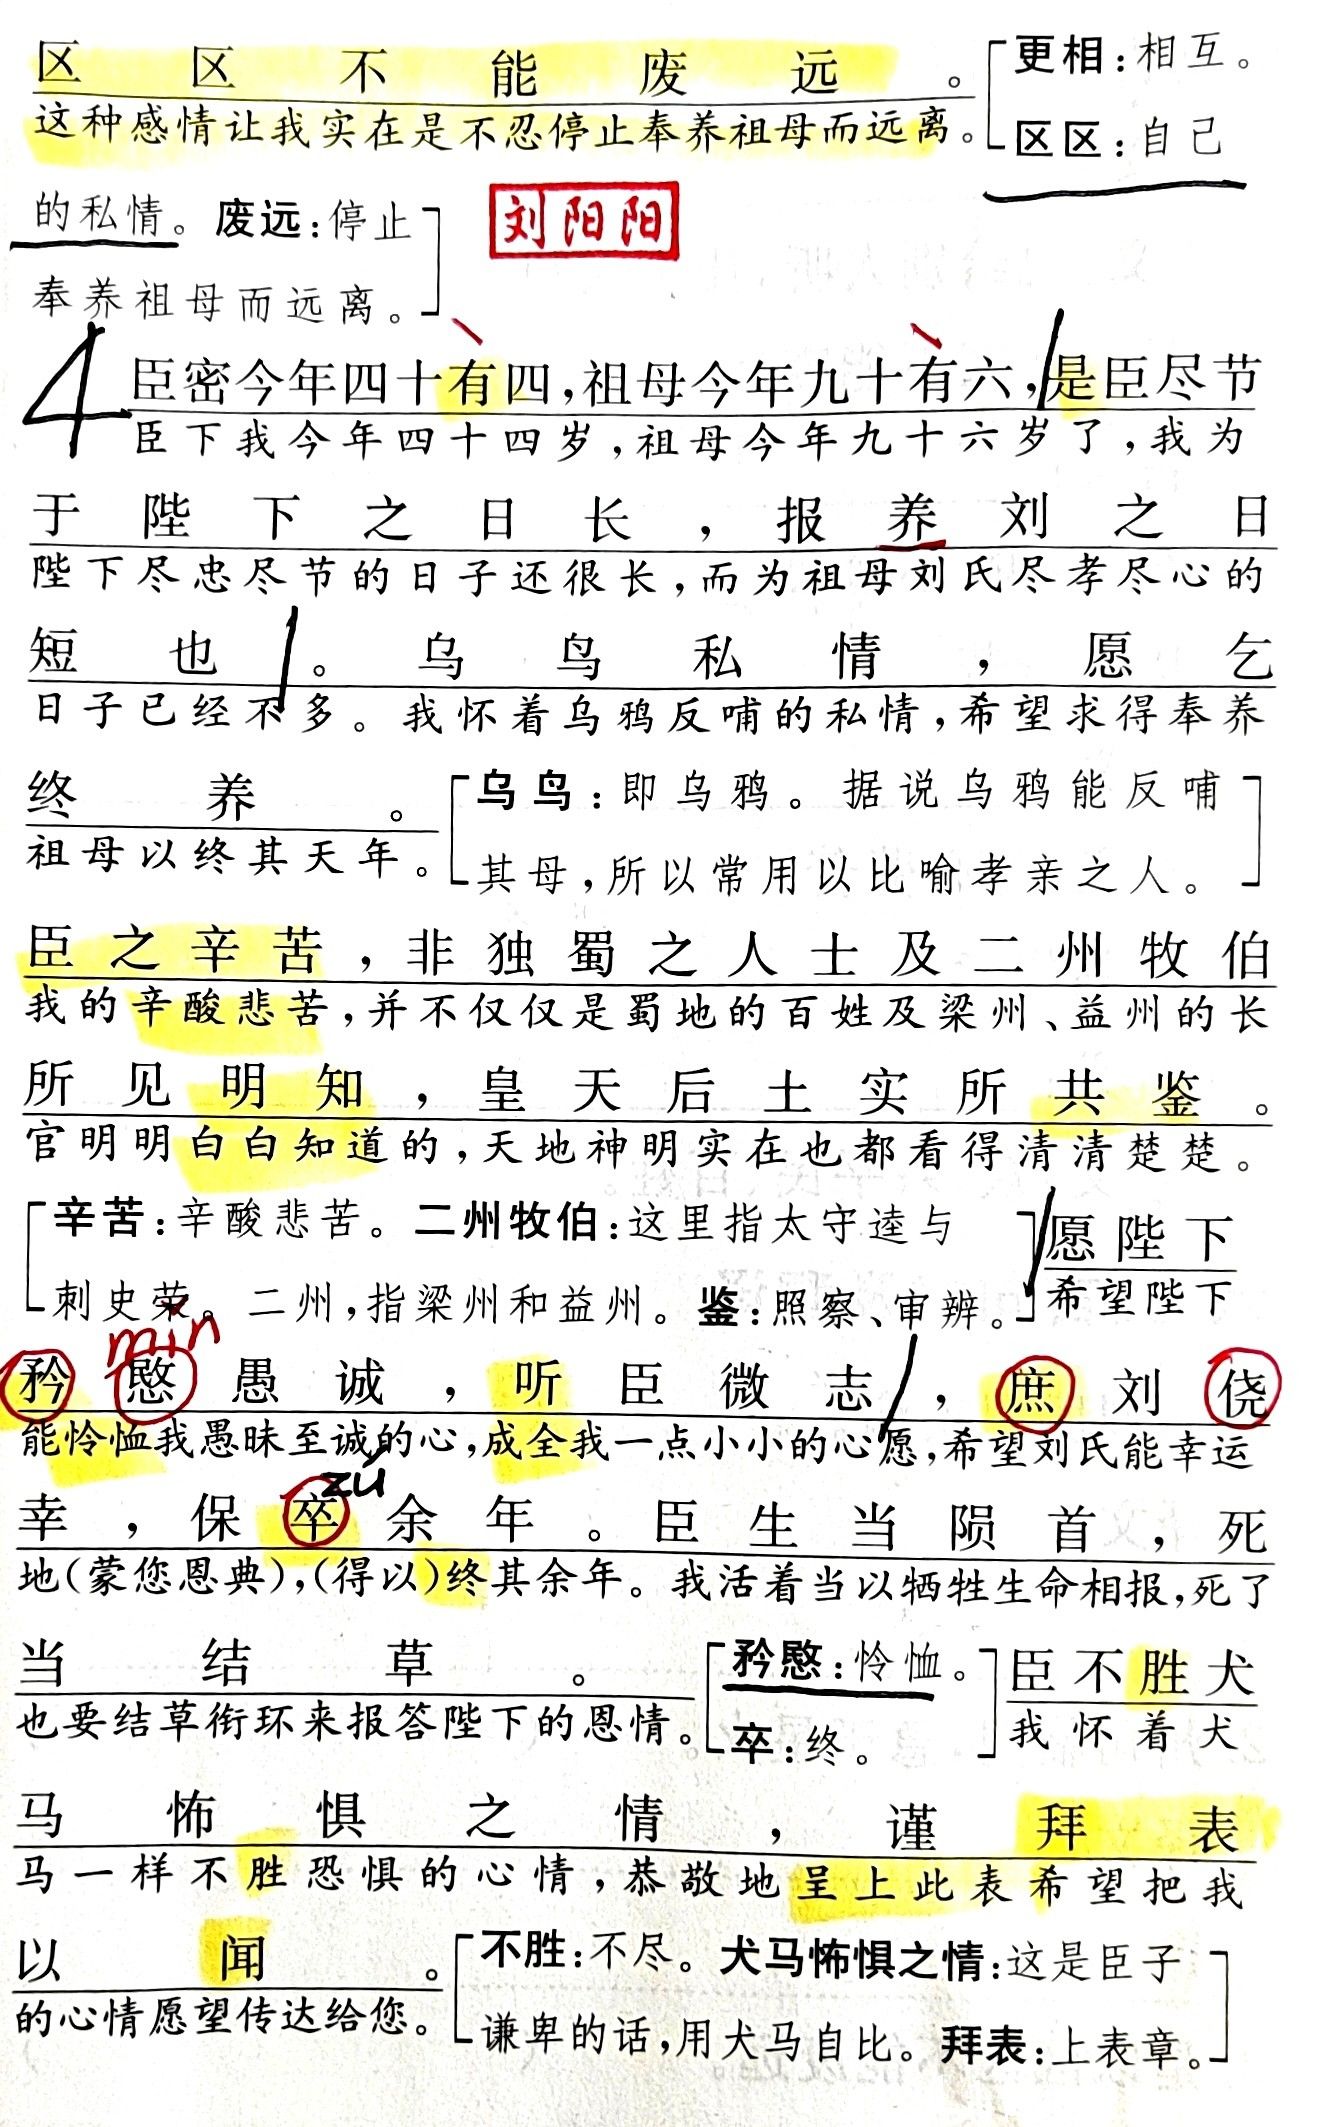 区区不能废远。[更相:相互。
这种感情让我实在是不忍停止奉养祖母而远离。区区:自己
的私情。废远:停止
刘阳阳
奉养祖母而远离。]
4 臣密今年四十有四,祖母今年九十有六,是臣尽节
臣下我今年四十四岁,祖母今年九十六岁了,我为
于陛下之日长,报养刘之日
陛下尽忠尽节的日子还很长,而为祖母刘氏尽孝尽心的
短也。乌鸟私情,愿乞
日子已经不多。我怀着乌鸦反哺的私情,希望求得奉养
终养。[乌鸟:即乌鸦。据说乌鸦能反哺
祖母以终其天年。其母,所以常用以比喻孝亲之人。]
臣之辛苦,非独蜀之人士及二州牧伯
我的辛酸悲苦,并不仅仅是蜀地的百姓及梁州、益州的长
所见明知,皇天后土实所共鉴。
官明明白白知道的,天地神明实在也都看得清清楚楚。
[辛苦:辛酸悲苦。二州牧伯:这里指太守逵与
刺史荣。二州,指梁州和益州。鉴:照察、审辨。]
愿陛下
希望陛下
mǐn
矜愍愚诚,听臣微志,庶刘侥
能怜恤我愚昧至诚的心,成全我一点小小的心愿,希望刘氏能幸运
zú
幸,保卒余年。臣生当陨首,死
地(蒙您恩典),(得以)终其余年。我活着当以牺牲生命相报,死了
当结草。
也要结草衔环来报答陛下的恩情。
[矜愍:怜恤。
卒:终。]
臣不胜犬
我怀着犬
马怖惧之情,谨拜表
马一样不胜恐惧的心情,恭敬地呈上此表希望把我
以闻。[不胜:不尽。犬马怖惧之情:这是臣子
的心情愿望传达给您。谦卑的话,用犬马自比。拜表:上表章。]